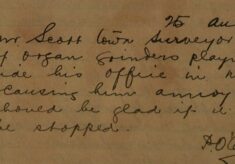 25 au
Mr Scott Town Surveyor
of organ grinders play
side his office in
causing him annoy
should be glad if
be stopped.